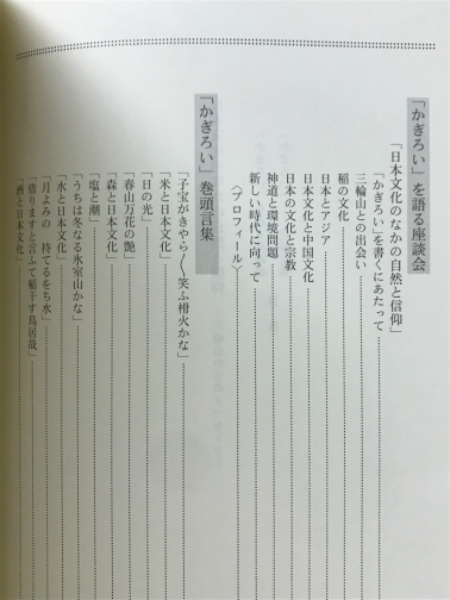 「かぎろい」を語る座談会
「日本文化のなかの自然と信仰」
「かぎろい」を書くにあたって
三輪山との出会い
稲の文化
日本とアジア
日本文化と中国文化
日本の文化と宗教
神道と環境問題
新しい時代に向って
〈プロフィール〉
「かぎろい」巻頭言集
「子宝がきやら〱笑ふ榾火かな」
「米と日本文化」
「日の光」
「春山万花の艶」
「森と日本文化」
「塩と潮」
「うちは冬なる氷室山かな」
「水と日本文化」
「月よみの　持てるをち水」
「借りますと言ふて稲干す鳥居哉」
「酒と日本文化」